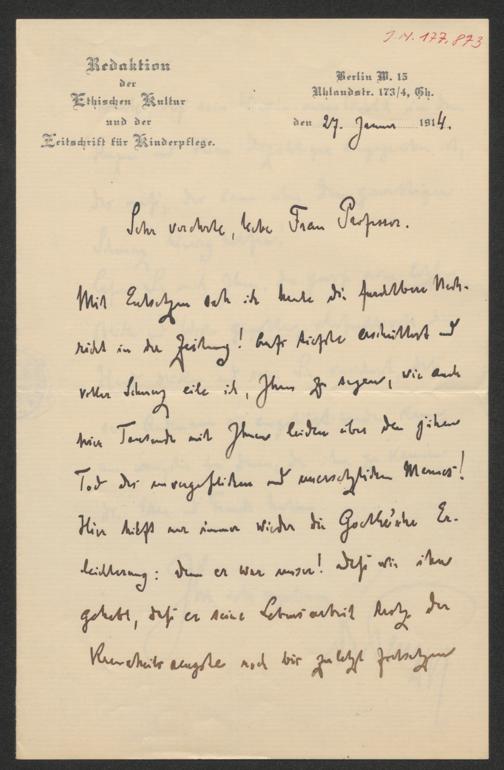 J.N. 177.873
Redaktion
der
Ethischen Kultur
und der
Zeitschrift für Kinderpflege.
Berlin W. 15
Uhlandstr. 173/4, Gh.
den 27. Januar 1914.
Sehr verehrte, liebe Frau Professor.
Mit Entsetzen sah ich heute die furchtbare Nach-
richt in der Zeitung! Aufs tiefste erschüttert und
voller Schmerz eile ich, Ihnen zu sagen, wie auch
hier Tausende mit Ihnen leiden über den jähen
Tod des unvergeßlichen und unersetzlichen Mannes!
Hier hilft nur immer wieder die Goethe'sche Er-
leichterung: denn er war unser! Daß wir ihn
gehabt, daß er seine Lebensarbeit trotz der
noch bis zuletzt fortsetzen